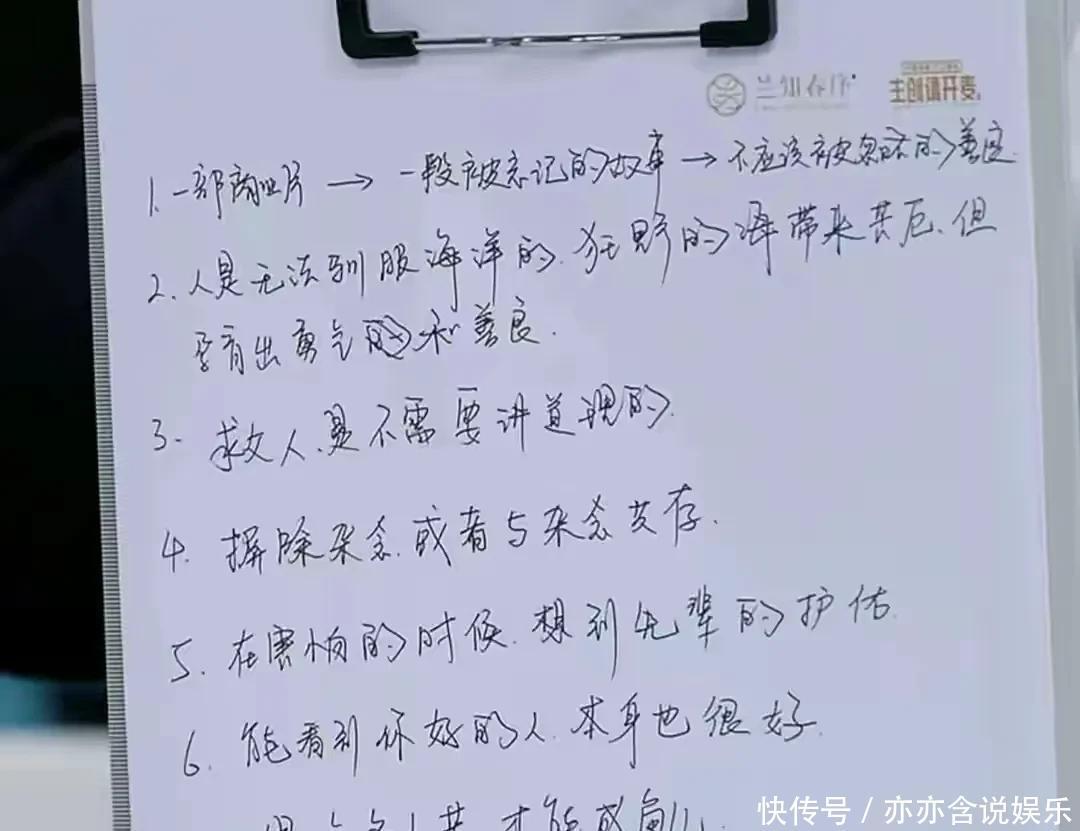 兰知春序
主创请开麦
1. 一部商业片 → 一段被忘记的故事 → 不应该被忽略的善良
2. 人是无法驯服海洋的. 狂野的海带来苦厄. 但
孕育出勇气的和善良.
3. 救人是不需要讲道理的.
4. 摒除杂念. 或者与杂念共存.
5. 在害怕的时候. 想到先辈的护佑.
6. 能看到你好的人. 本身也很好.
快传号 / 亦亦含说娱乐